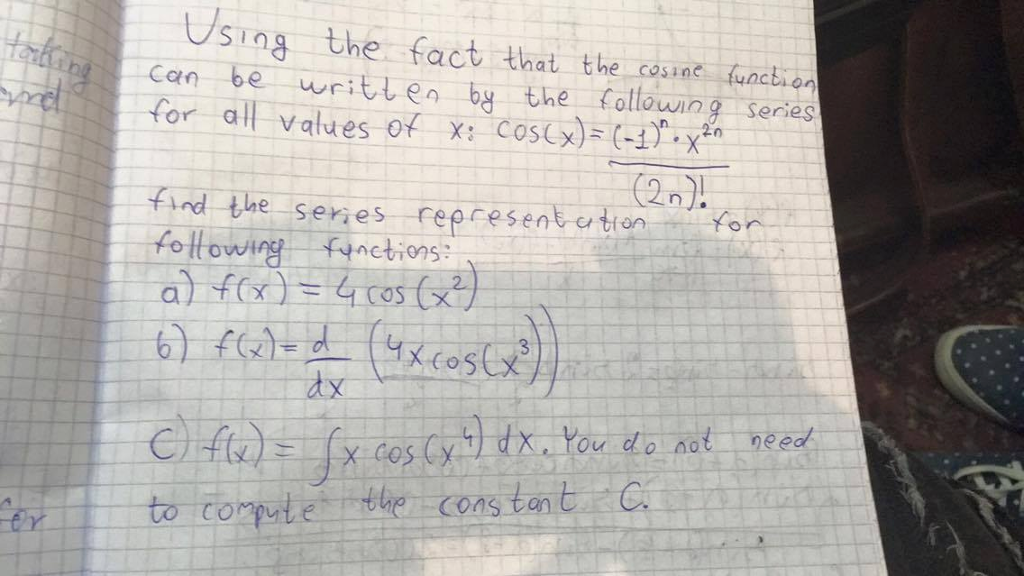 Using the fact that the cosine function
can be written by the following series
for all values of x: cos(x) = (-1)^n · x^2n
(2n)!
find the series representation for
following functions:
a) f(x) = 4 cos (x²)
b) f(x) = d/dx (4x cos(x³))
C) f(x) = ∫x cos (x⁴) dx. You do not need
to compute the constant C.
for